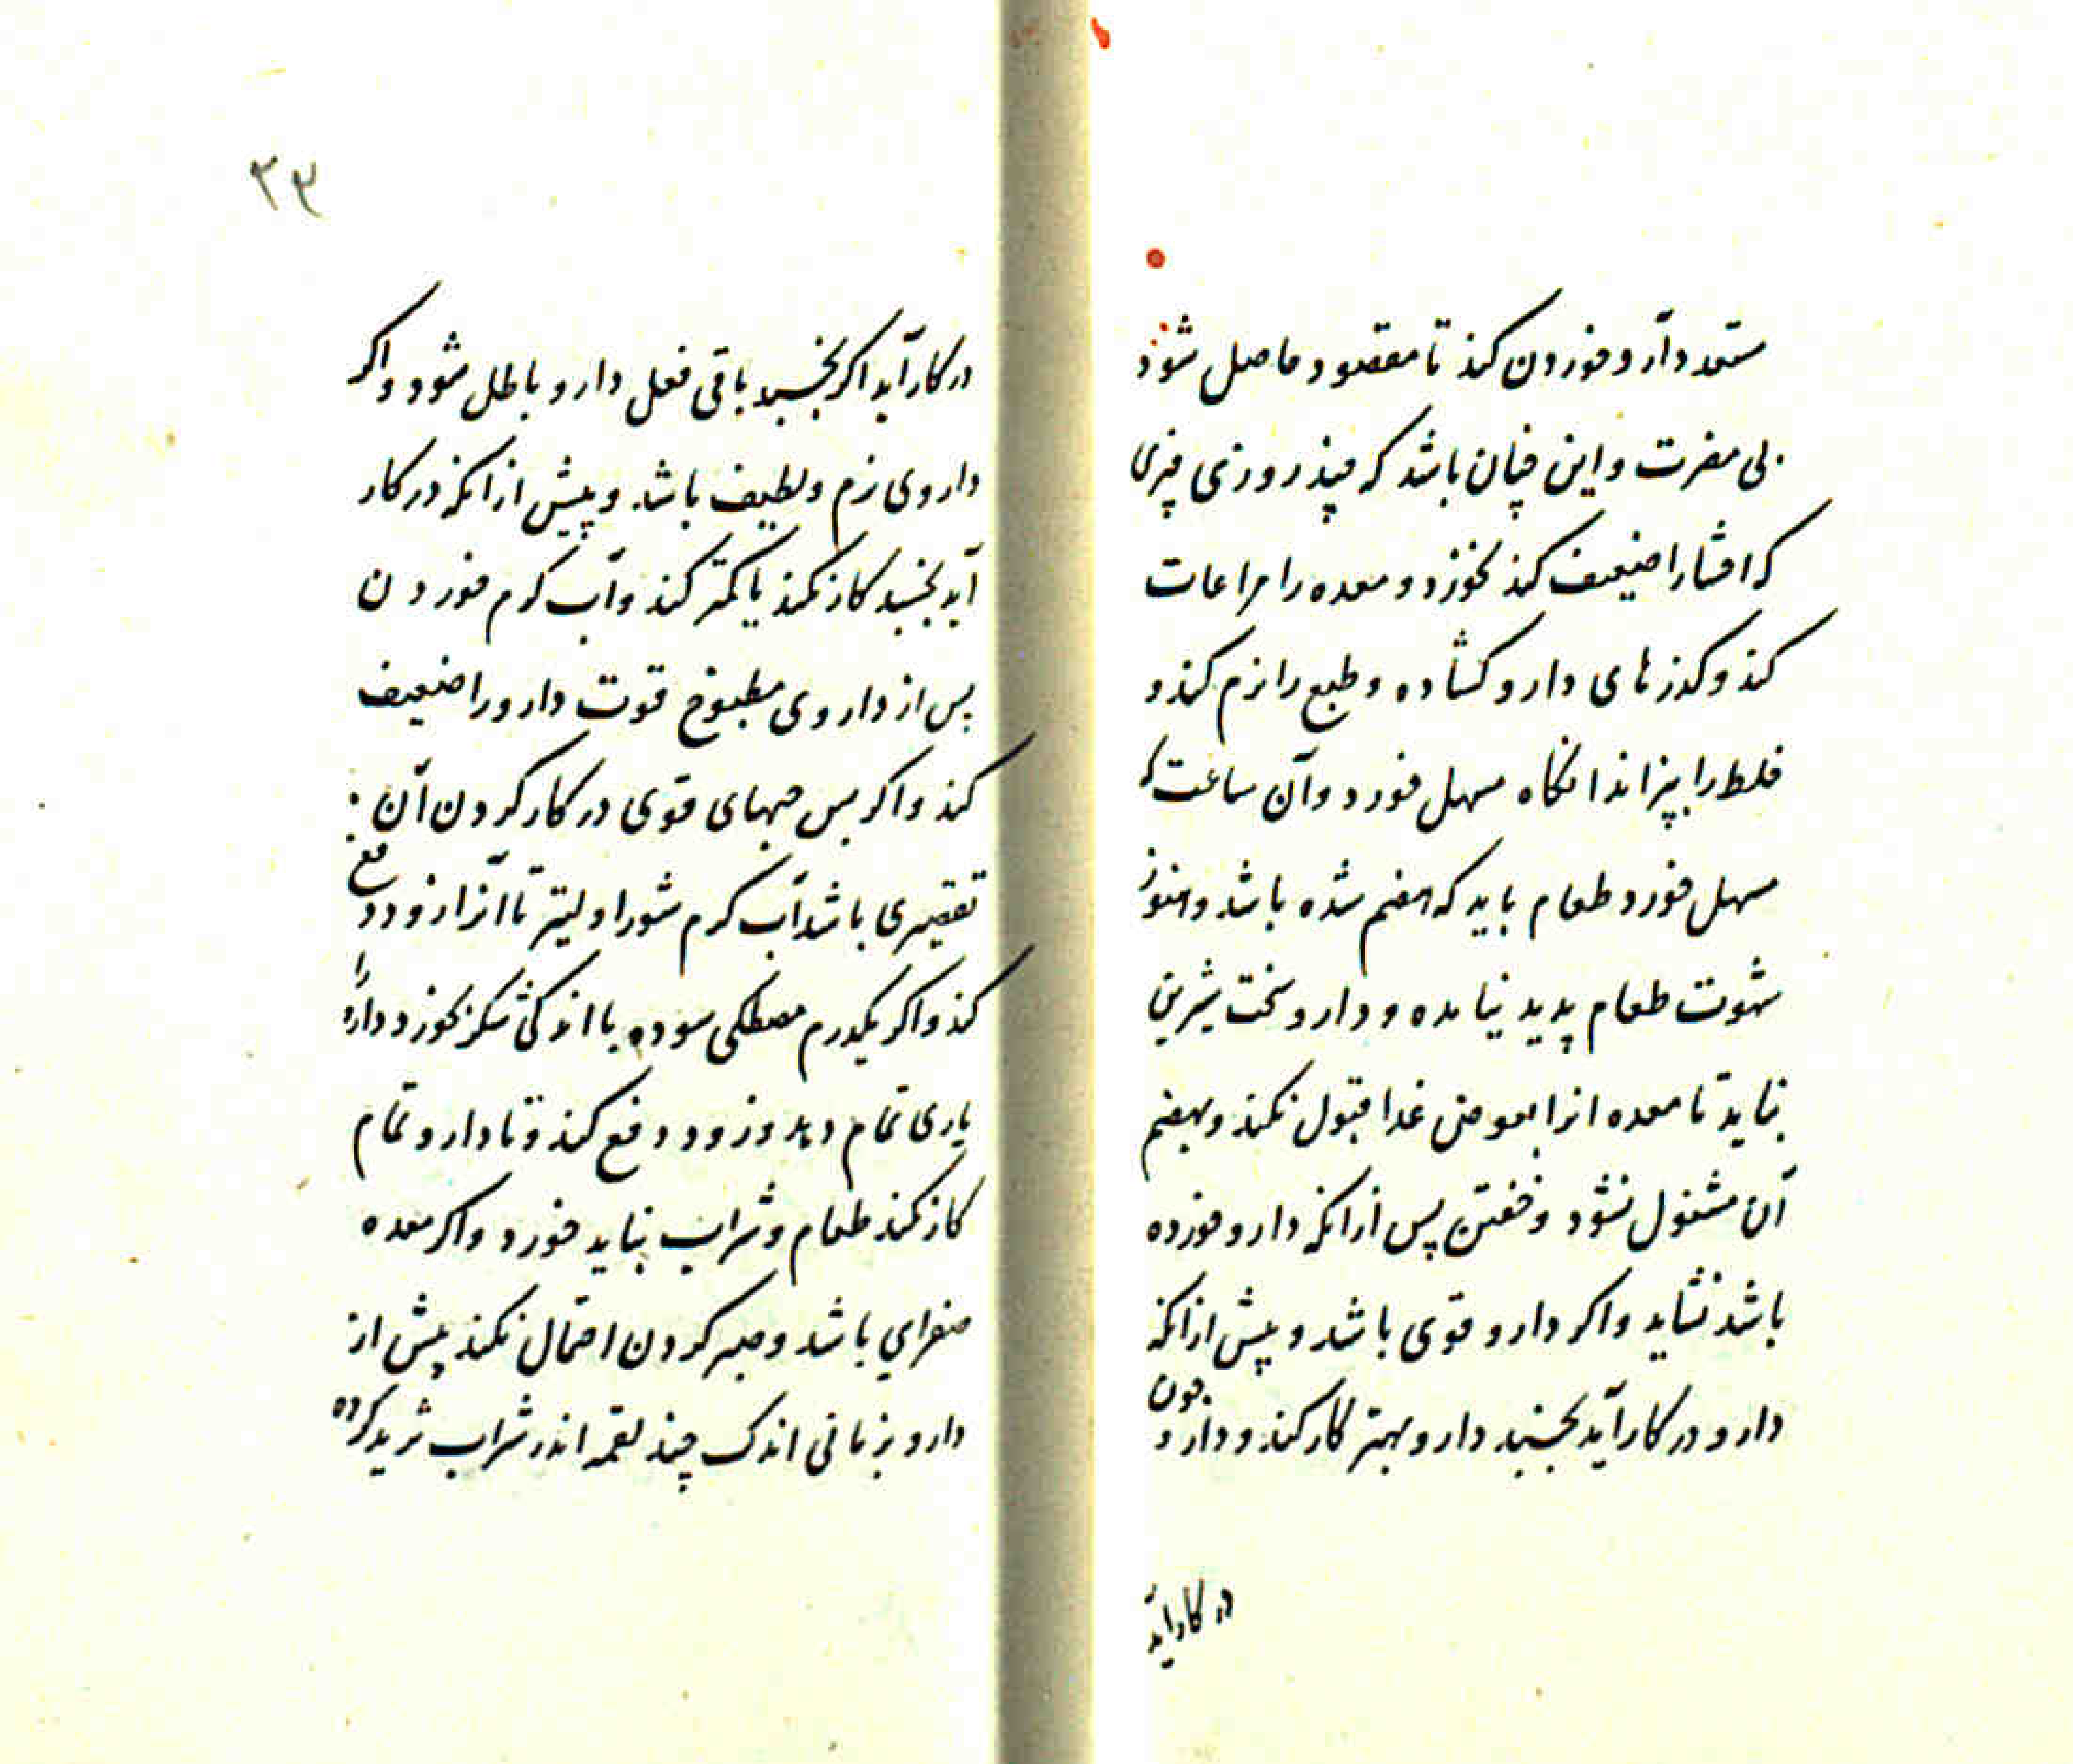 مستعد دارو خوردن کند تا مقصود حاصل شود
بی مضرت و این چنان باشد که چند روزی چیزی
که احشا را ضعیف کند نخورد و معده را مراعات
کند و کذرهای دارو کشاده و طبع را نرم کند و
خلط را بپزاند انکاه مسهل خورد و آن ساعت که
مسهل خورد طعام باید که هضم شده باشد و هنوز
شهوت طعام پدید نیامده و دارو سخت شیرین
نباید تا معده انرا بعوض غدا قبول نکند و بهضم
آن مشغول نشود و خفتن پس از انکه دارو خورده
باشد نشاید و اکر دارو قوی باشد و پیش از انکه
دارو در کار آید بخسبد دارو بهتر کار کند و چون دارو
در کار اید
۳۳
در کار آید اکر بخسبد باقی فعل دارو باطل شود و اکر
داروی نرم و لطیف باشد و پیش از انکه در کار
آید بخسبد کار نکند یا کمتر کند و آب کرم خوردن
پس از داروی مطبوخ قوت دارو را ضعیف
کند و اکر پس حبهای قوی در کار کردن آن
تقصیری باشد آب کرم شورا ولیتر تا آنرا زود دفع
کند و اکر یکدرم مصطکی سوده با اندکی شکر بخورد دارو را
یاری تمام دهد و زود دفع کند و تا دارو تمام
کار نکند طعام و شراب نباید خورد و اکر معده
صفرایی باشد و صبر کردن احتمال نکند پیش از
دارو بزمانی اندک چند لقمه اندر شراب ثرید کرده